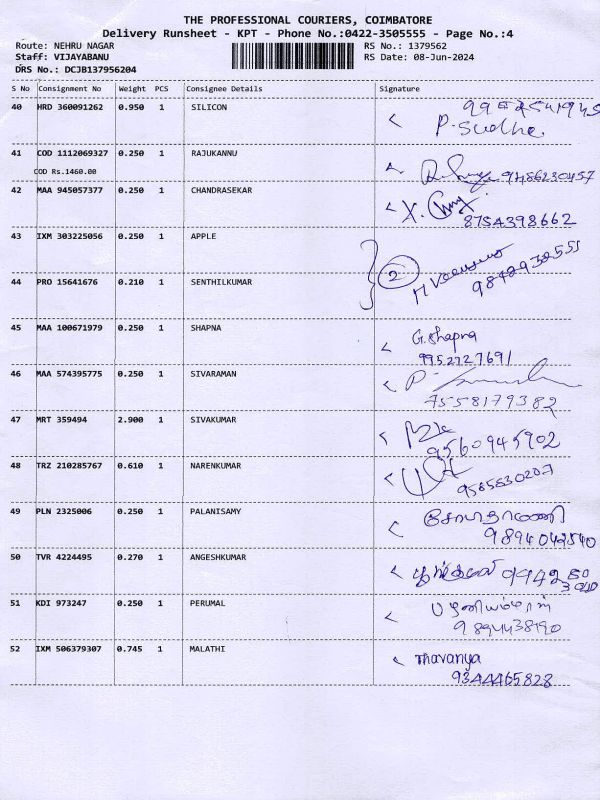 THE PROFESSIONAL COURIERS, COIMBATORE
Delivery Runsheet - KPT - Phone No.:0422-3505555 - Page No.:4
Route: NEHRU NAGAR
Staff: VIJAYABANU
DRS No.: DCJB137956204
RS No.: 1379562
RS Date: 08-Jun-2024
S No Consignment No Weight PCS Consignee Details Signature
40 HRD 360091262 0.950 1 SILICON
P. Sudha.
41 COD 1112069327 0.250 1 RAJUKANNU
COD Rs.1460.00
9486230457
42 MAA 945057377 0.250 1 CHANDRASEKAR
8754398662
43 IXM 303225056 0.250 1 APPLE
2
44 PRO 15641676 0.210 1 SENTHILKUMAR
45 MAA 100671979 0.250 1 SHAPNA
G. Shapna
9952727691
46 MAA 574395775 0.250 1 SIVARAMAN
7558179382
47 MRT 359494 2.900 1 SIVAKUMAR
9560945902
48 TRZ 210285767 0.610 1 NARENKUMAR
49 PLN 2325006 0.250 1 PALANISAMY
50 TVR 4224495 0.270 1 ANGESHKUMAR
51 KDI 973247 0.250 1 PERUMAL
52 IXM 506379307 0.745 1 MALATHI
Thavanya
9344465828